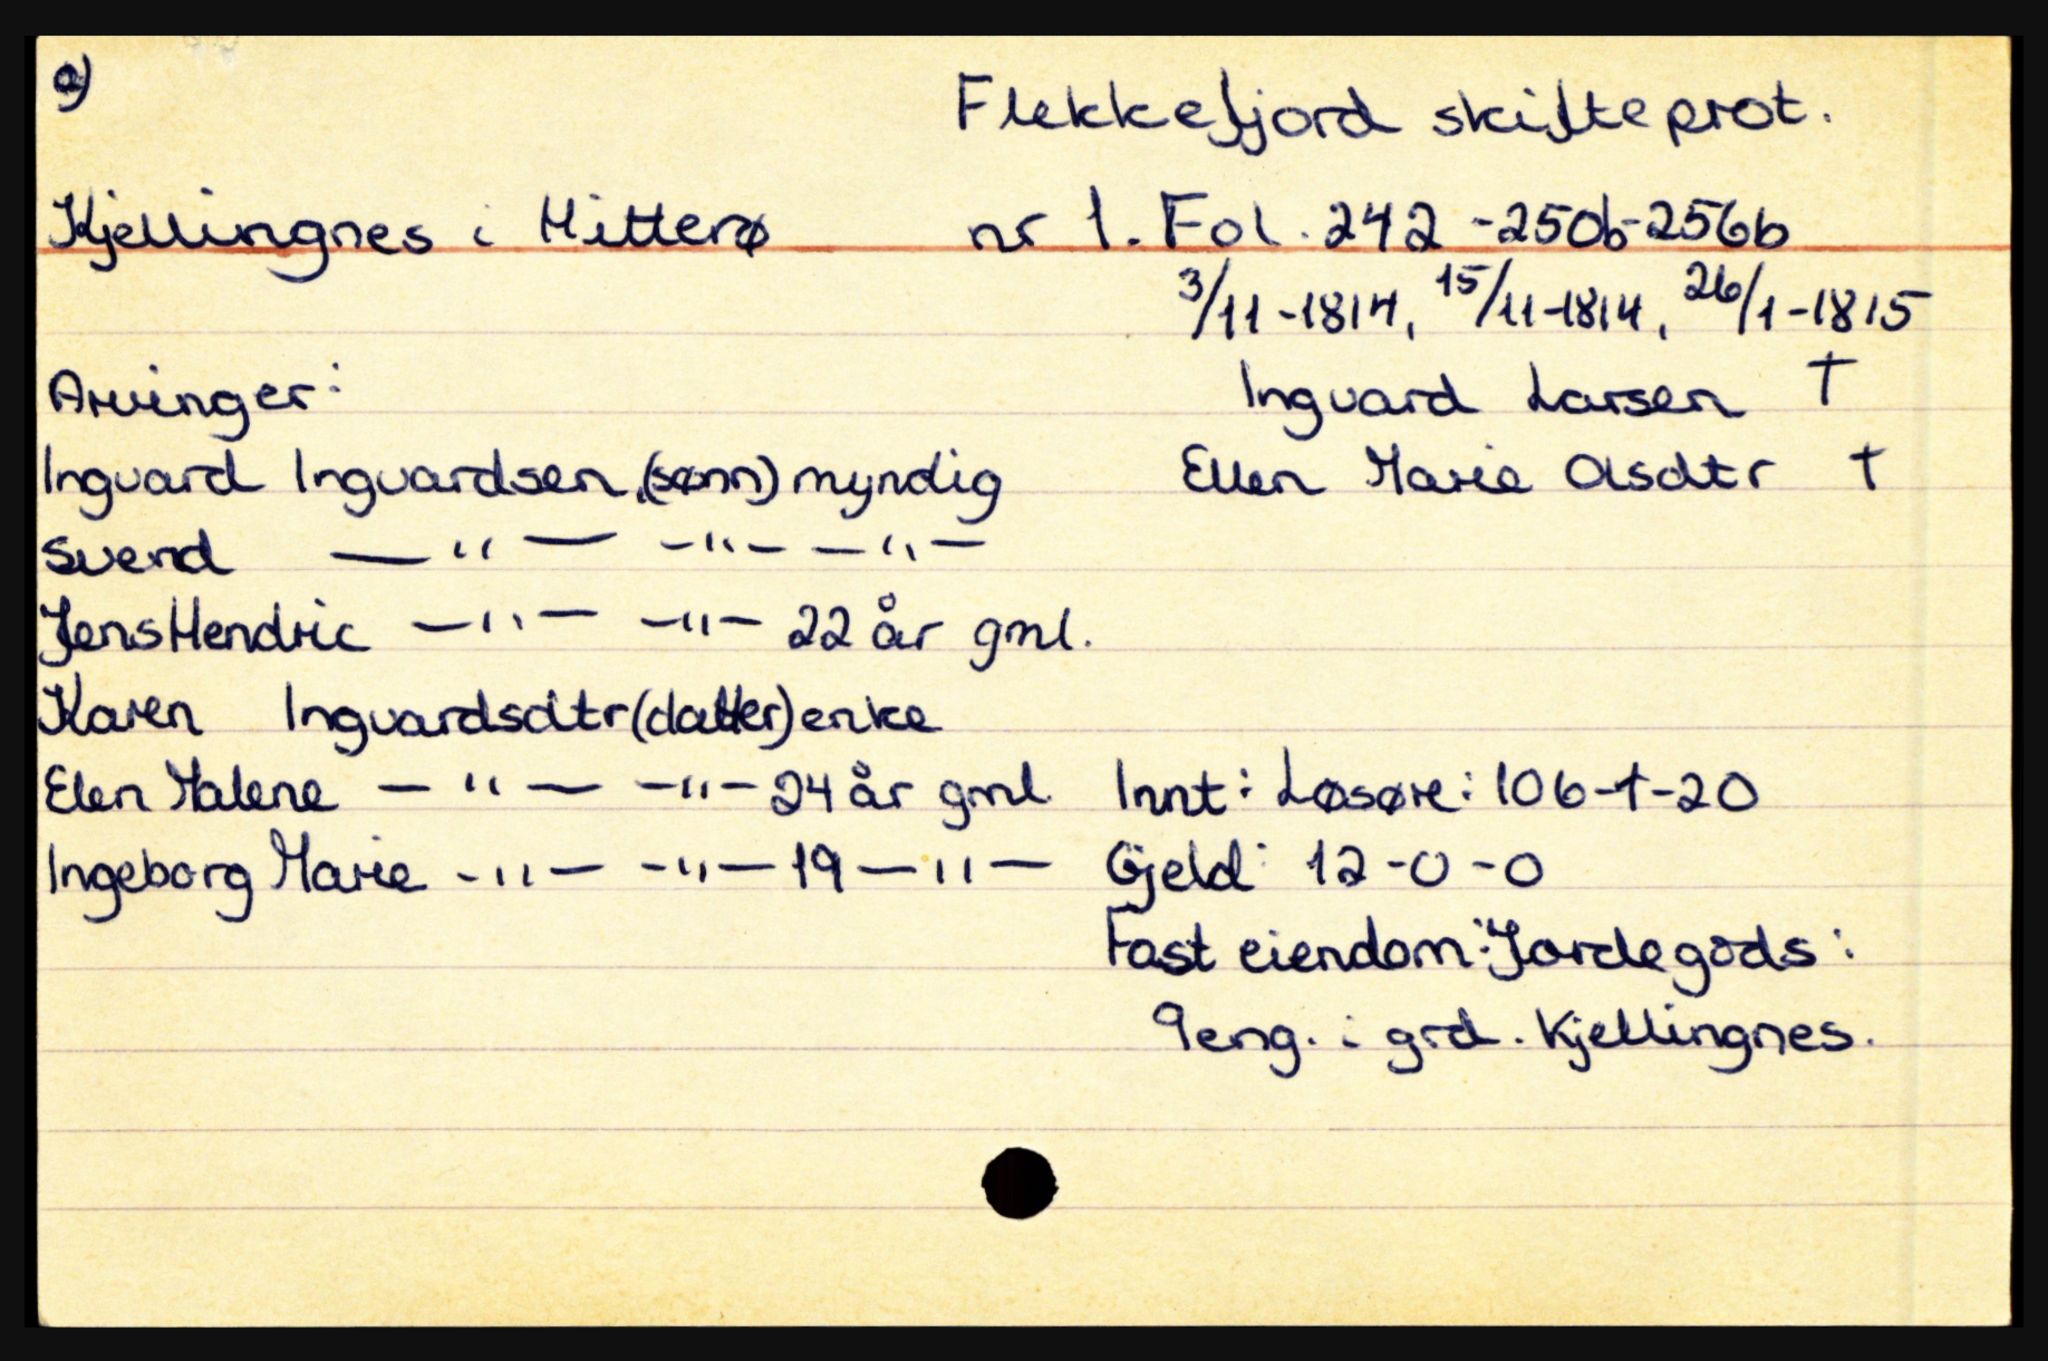 a)
Flekkefjord skifteprot.
Kjellingnes i Hitterø nr 1. Fol. 242 -250b-256b
3/11-1814, 15/11-1814, 26/1-1815
Arvinger: Inguard Larsen †
Inguard Inguardsen, (sønn) myndig Ellen Marie Olsdtr †
Svend — " — -"- -"-
Jens Hendric -"- -"- 22 år gml.
Karen Inguardsdtr (datter) enke
Elen Malene -"- -"- 24 år gml. Innt: Løsøre: 106-1-20
Ingeborg Marie -"- -"- 19 -"- Gjeld: 12-0-0
Fast eiendom: Jordegods:
9eng. i grd. Kjellingnes.